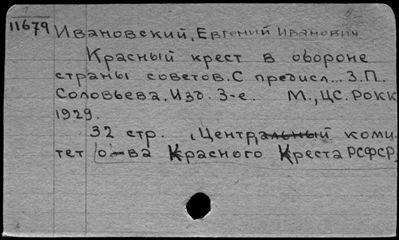 11679
Ивановский, Евгений Иванович
Красный крест в обороне
страны советов. С предисл... З.П.
Соловьева. Изд. 3-е. М., ЦС. РОКК
1929.
32 стр. (Центральный коми-
тет о-ва Красного Креста РСФСР)